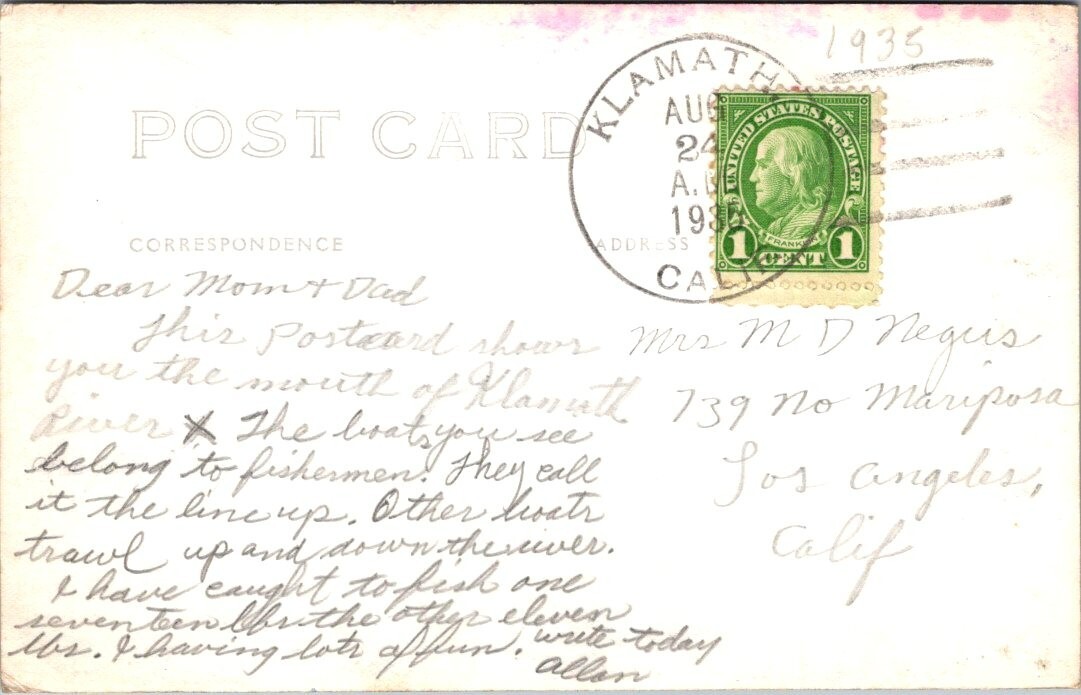 1935
KLAMATH
AUG
24
A.M
1935
CALIF
UNITED STATES POSTAGE
FRANKLIN
1 CENT 1
POST CARD
CORRESPONDENCE
ADDRESS
Dear Mom + Dad
This postcard shows
you the mouth of Klamath
River X The boats you see
belong to fishermen. They call
it the line up. Other boats
trawl up and down the river.
I have caught to fish one
seventeen lbs the other eleven
lbs. I having lots of fun. write today
Allan
Mrs M D Negus
739 No Mariposa
Los Angeles,
Calif